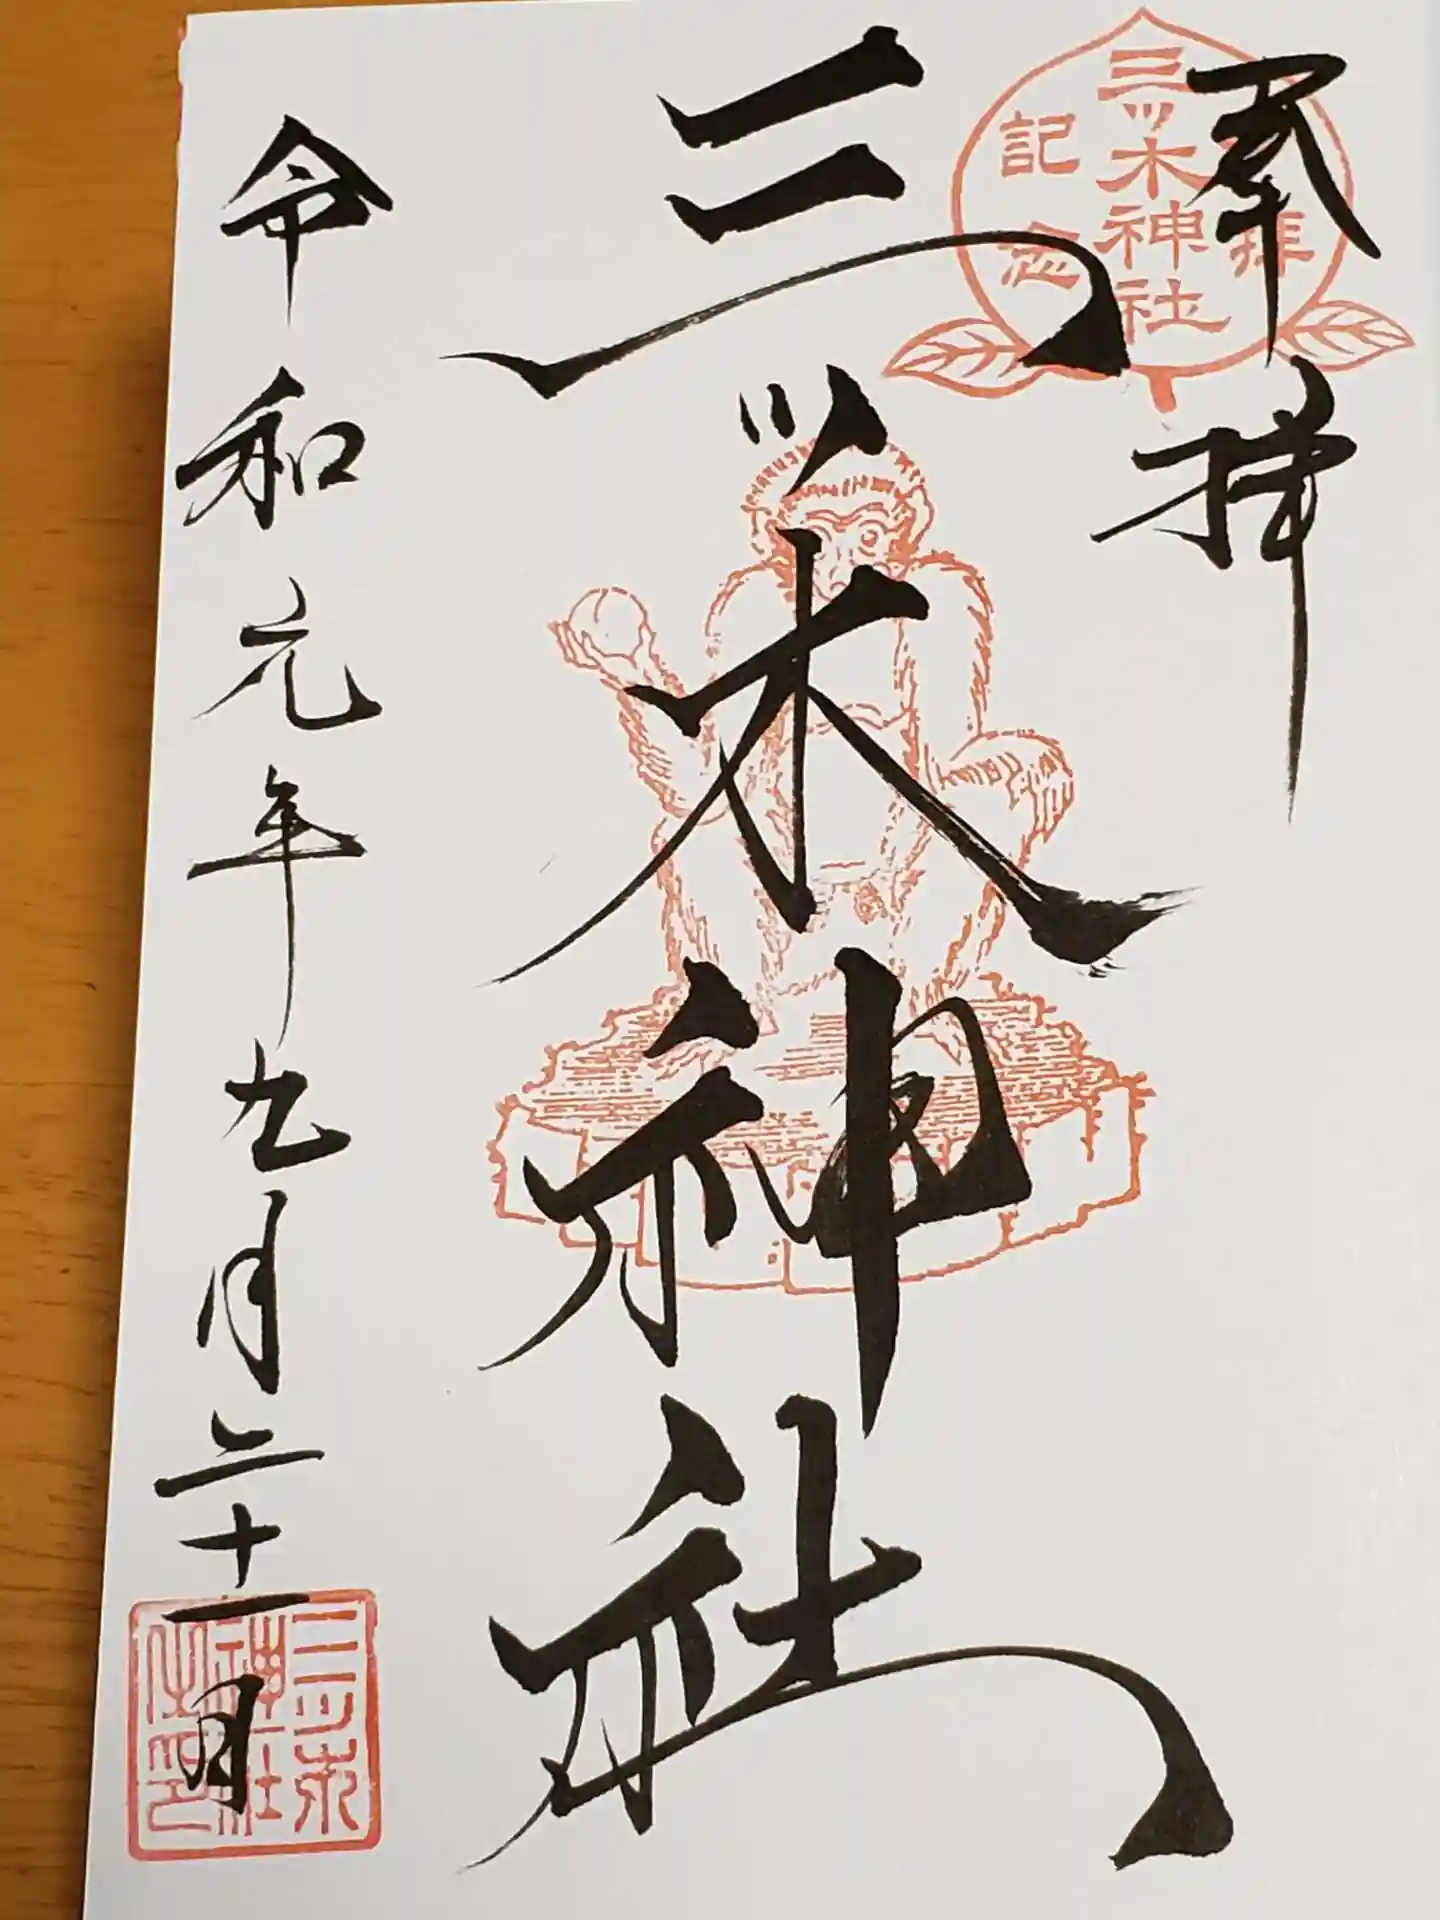 奉拝
三ッ木神社
令和元年九月二十一日
三ッ木神社
拝
記念
三ツ木
神社
之印